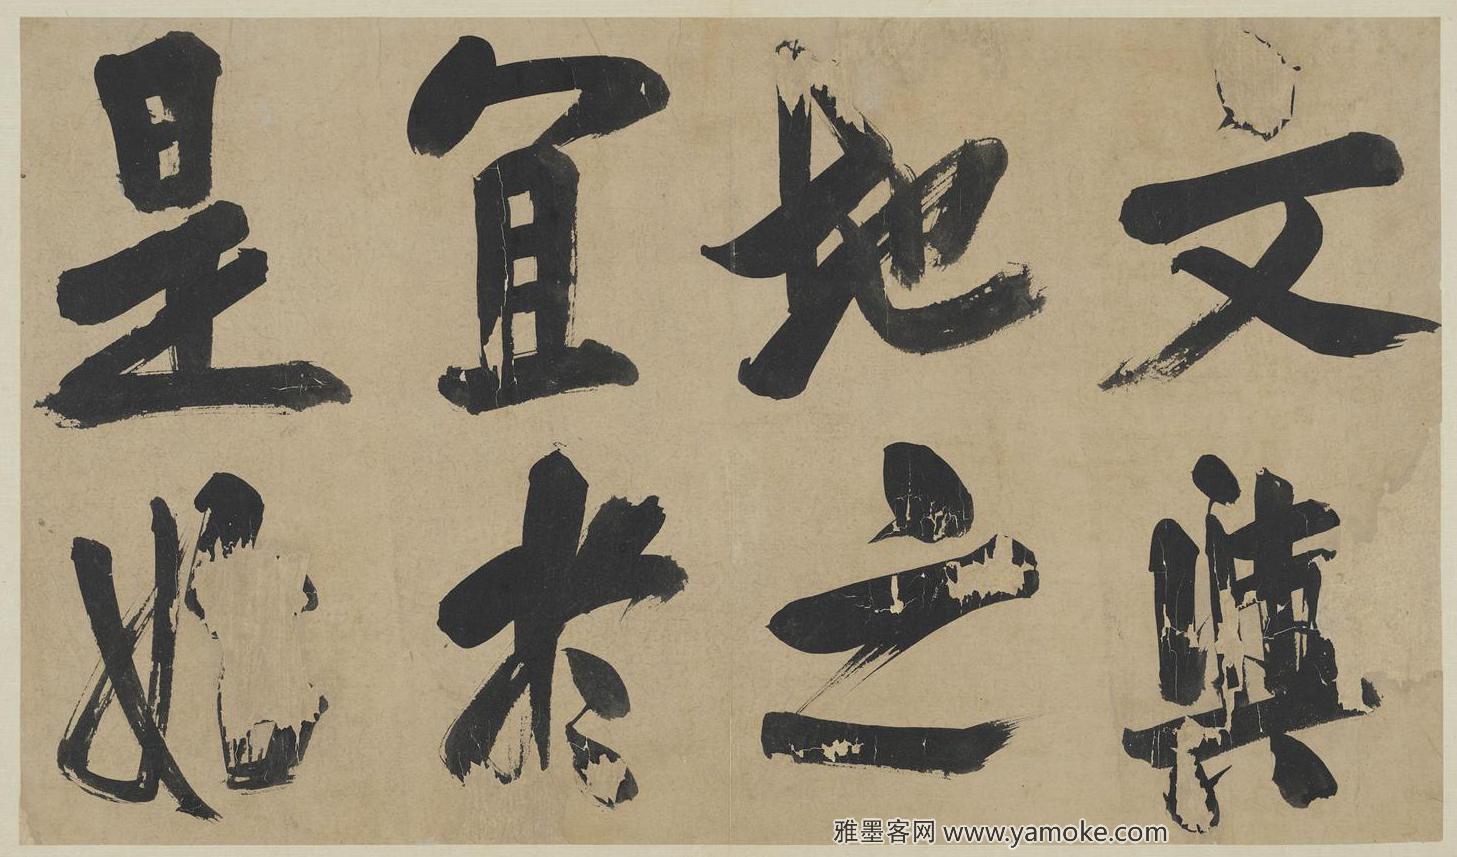 文與
地之
宜於
是始
雅墨客网 www.yamoke.com